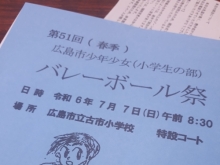 第51回(春季)
広島市少年少女(小学生の部)
バレーボール祭
日時 令和6年7月7日(日)午前8:30
場所 広島市立古市小学校 特設コート